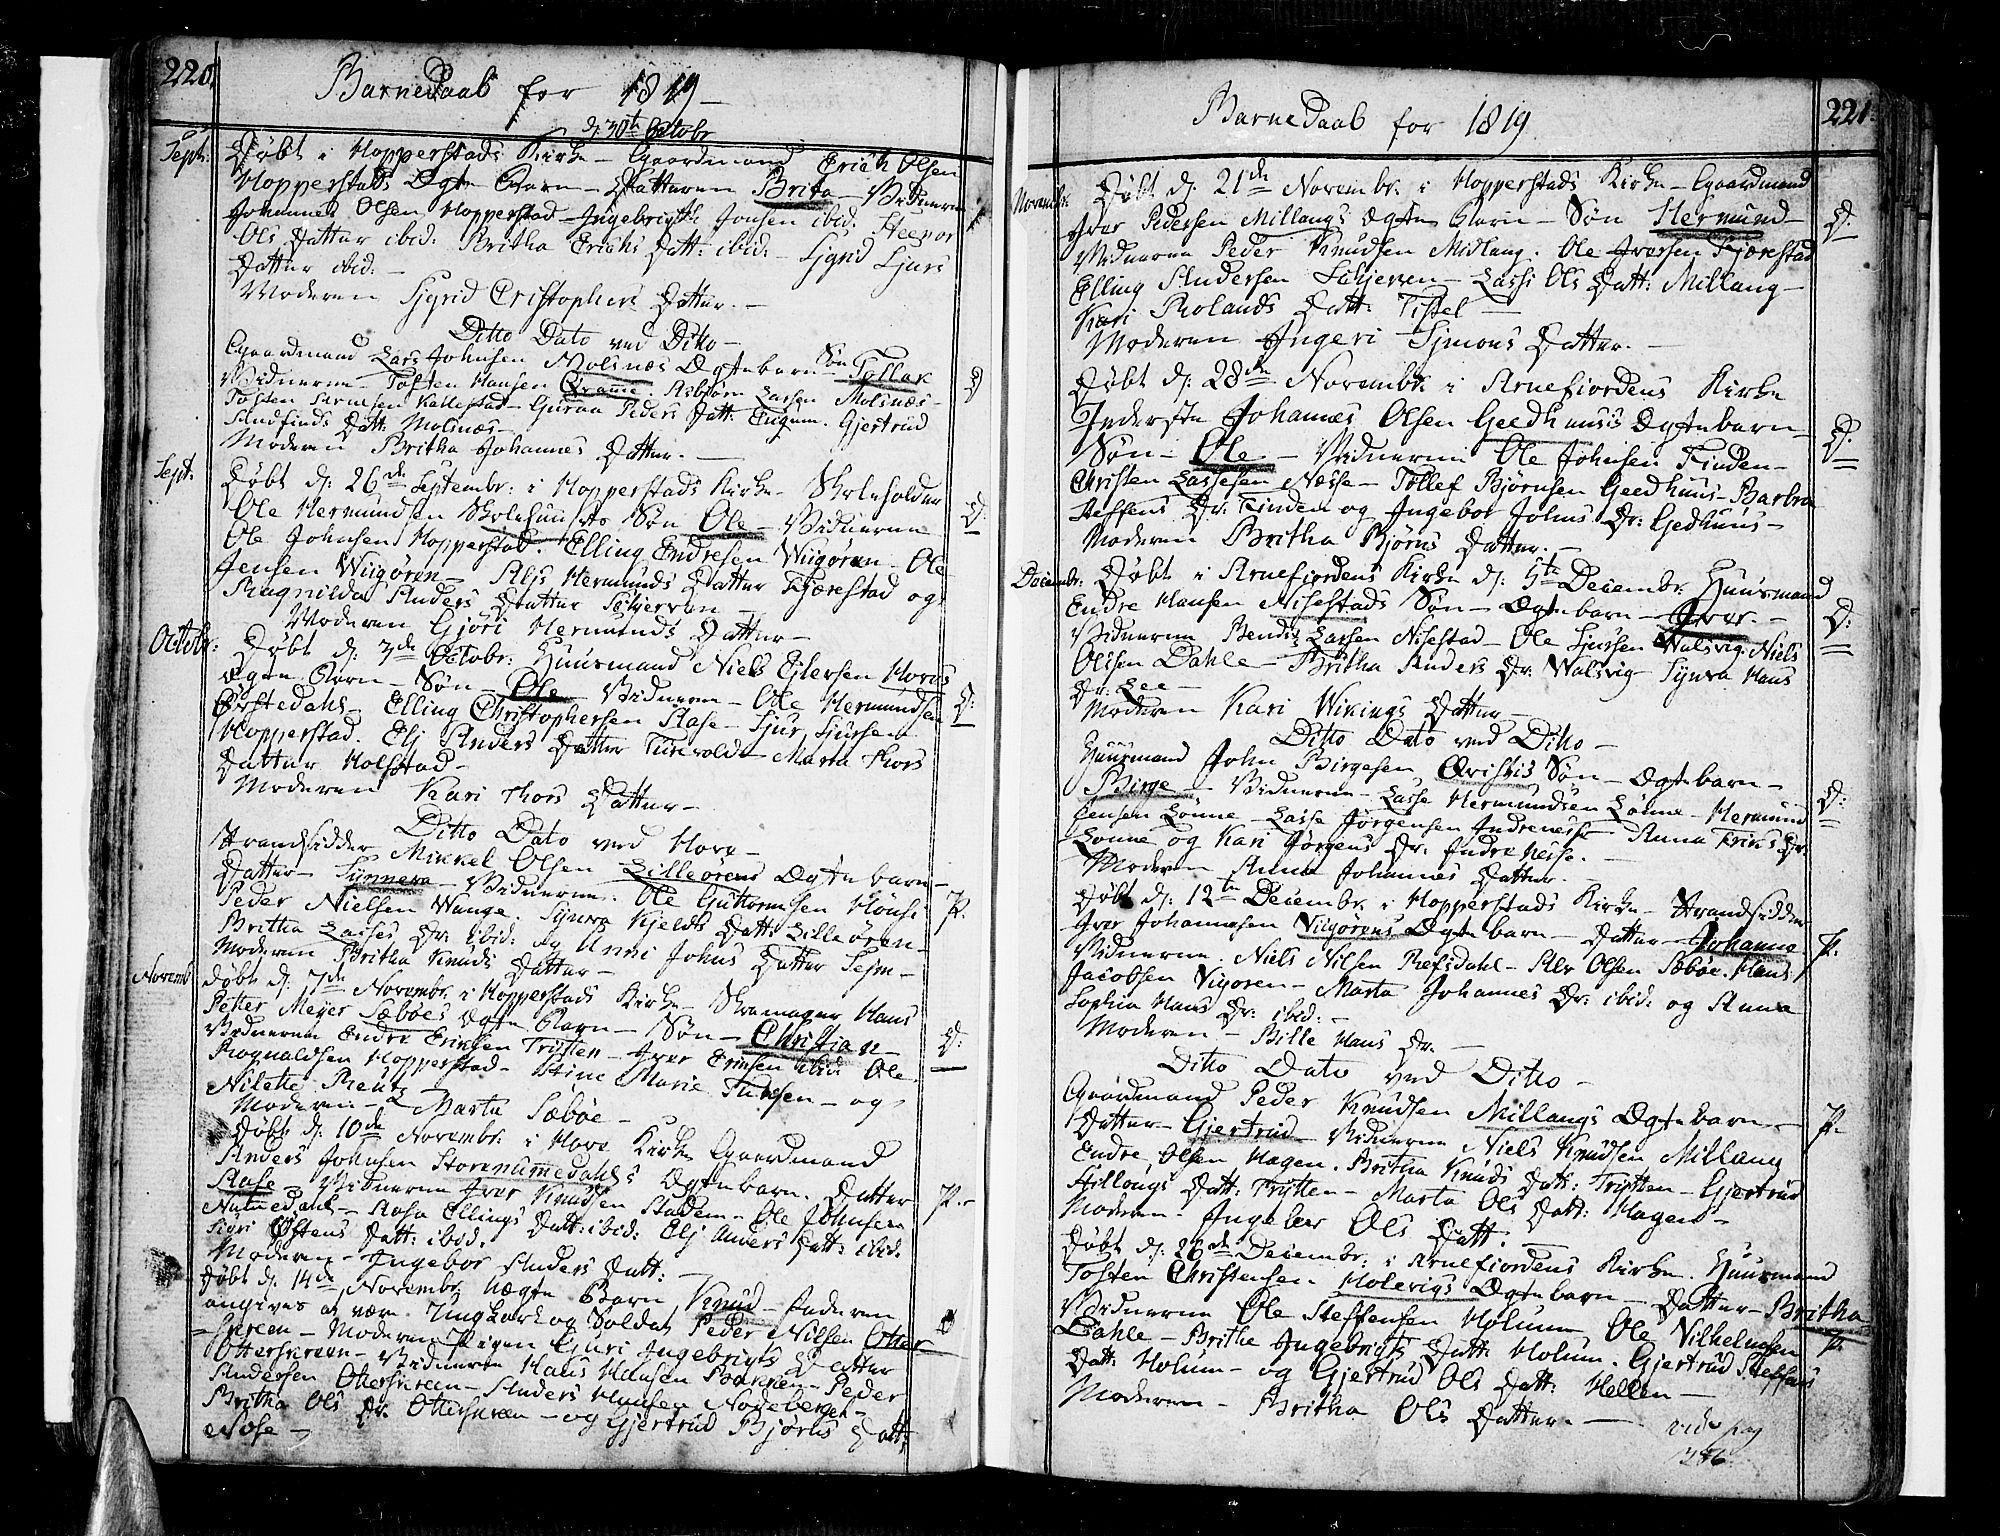 220.
Barnedaab for 1819 –
d. 30te Octobr
Sept: Døbt i Hopperstads Kirke – Gaardmand Erich Olsen
Hopperstads Ægte Barn – Datteren Brita – Vidnerne
Johannes Olsen Hopperstad Ingebrigth Jonsen ibid: Steenor
Ols Datter ibid: Britha Erichs Datt: ibid: – Sigrid Sjurs
Datter ibid: –
Moderen Sigrid Cristophers Datter. –
Ditto Dato ved Ditto –
Gaardmand Lars Johnsen Molsnæs Ægtebarn – Søn Tollak
Vidnerne – Tosten Hansen Asbiörn Larsen Molsnæs –
Tosten Kallestad – Guraa Peders Datt: Eigum. Gjertrud
Datt: Molnæs –
Moderen Britha Johannes Datter. –
Sept. Døbt d: 26de Septembr: i Hopperstads Kirke – Skoleholder
Ole Hermundsen Søn Ole – Vidnerne D:
Ole Johnsen Hopperstad. Elling Endresen Wiigøren – Ole
Jensen Wiigøren – Hermunds Datter Fjærestad og
Ragnilda Anders Datter Schjerven –
Moderen Gjöri Hermunds Datter –
Octobr: Døbt d: 3de Octobr: Huusmand Niels Eilersen Hoves
Ægte Barn – Søn Ole – Vidnerne – Ole Hermundsen D:
Ørstedahl – Elling Christophersen Aase – Sjur Sjursen
Hopperstad. Elj Anders Datter Marta Thors
Datter Holstad –
Moderen Kari Thors Datter –
Ditto Dato ved Hove –
Strandsidder Mikkel Olsen Lilleørens Ægte barn –
Datter – Synneva – Vidnerne. Ole Guttormsen Hønsi P.
Peder Nielsen Wange. Synva Kjelds Datt: Lilleøren –
Britha Lasses Dr: ibid: og Anni Johns Datter
Moderen Britha Knuds Datter –
Novemb Døbt d: 7de Novembr: i Hopperstads Kirke – Skomager Hans
Petter Meyer Sæbøes Ægte Barn – Søn – Christian – D:
Vidnerne Endre Erichsen Trÿtten – Iver Erichsen ibid: Ole
Rognaldsen Hopperstad – Stine Marie – og
Nilette Reutz –
Moderen – Marta Sæbøe –
Døbt d: 10de Novembr: i Hove Kirke Gaardmand
Anders Johnsen Ægte barn. Datter
Aase – Vidnerne Iver Knudsen Stadem – Ole Johnsen P. –
Nummedahl – Aasa Ellings Datt: ibid: Elj Anders Datt: ibid:
Sigri Østens Datt: ibid:
Moderen – Ingebor Anders Datt: –
Døbt d: 14de Novembr: Uægte Barn Knud – Faderen
angives at være Ungkarl og Soldat Peder Nilsen Otter
skreen – Moderen Pigen Guri Ingebrigts Datter
Otterskreen – Vidnerne Hans Hansen Bakken – Peder
Andersen Otterskreen – Anders Hansen
Britha Ols Dr: Otterskreen – og Gjertrud Bjørns Datt:
Nose –
Barnedaab for 1819
221.
Novembr: Døbt d: 21de Novembr: i Hopperstads Kirke – Gaardmand
Iver Pedersen Millangs Ægte Barn – Søn Hermund – D:
Vidnerne Peder Knudsen Midlang. Ole Iversen Fjærestad
Elling Andersen Schjerven – Lassi Ols Datt: Millang –
Kari Rolands Datt: Tistel –
Moderen Ingeri Sjmons Datter. –
Døbt d: 28de Novembr: i Arnefiordens Kirke
Inderste Johannes Olsen Geedhuusis Ægtebarn – D.
Søn – Ole – Vidnerne Ole Johnsen Finden –
Christen Lassesen Næsse – Tollef Bjørnsen Geedhuus – Barbra
Steffens Dr: Finden og Ingebor Johns Dr: Gedhuus –
Moderen Britha Bjørns Datter. –
Decembr: Døbt i Arnefiordens Kirke d: 5te Decembr: Huusmand
Endre Hansen Nisestads Søn – Ægte barn – Iver. – D:
Vidnerne Bendix Lassen Nisestad – Ole Sjursen Walsvig. Niels
Olssen Dahle – Britha Anders Dr: Walsvig – Synva Hans
Dr: Lee –
Moderen Kari Wikings Datter –
Ditto Dato ved Ditto –
Huusmand John Birgesen Søn – Ægte barn –
Birge – Vidnerne – Lasse Hermundsen Lønne – Hermund D:
Jensen Lønne – Lasse Jörgensen Indrenesse Anna Eriks Dr:
Lønne og Kari Jørgens Dr: Indre Nesse. –
Moderen Anna Johannes Datter. –
Døbt d: 12te Decembr: i Hopperstads Kirke – Strandsidder
Iver Johannesen Viigørens Ægte barn – Datter – Johanna P.
Vidnerne. Niels Nilsen Refsdahl – Alv Olsen Sæbøe. Hans
Jacobsen Vigøren – Marta Johannes Dr: ibid: og Anna
Sophia Hans Dr: ibid: –
Moderen – Bille Hans Dr: –
Ditto Dato ved Ditto –
Gaardmand Peder Knudsen Millangs Ægte barn – P.
Datter – Gjertrud – Vidnerne Niels Knudsen Millang
Endre Olsen Hagen. Britha Knuds Datt: Trytten – Gjertrud
Datt: Trytten – Marta Ols Datt: Hagen –
Moderen – Ingebor Ols Datt. –
Døbt d: 26de Decembr: i Arnefiordens Kirke. Huusmand
Tosten Christensen Holevigs Ægte barn – Datter – Britha
Vidnerne Ole Steffensen Holum, Ole Vilhelmsen P.
Dahle – Britha Ingebrigts Datt: Holum. Gjertrud Steffens
Datt: Holum – og Gjertrud Ols Datt: Hellen –
Moderen – Britha Ols Datter. –
vide pag
246